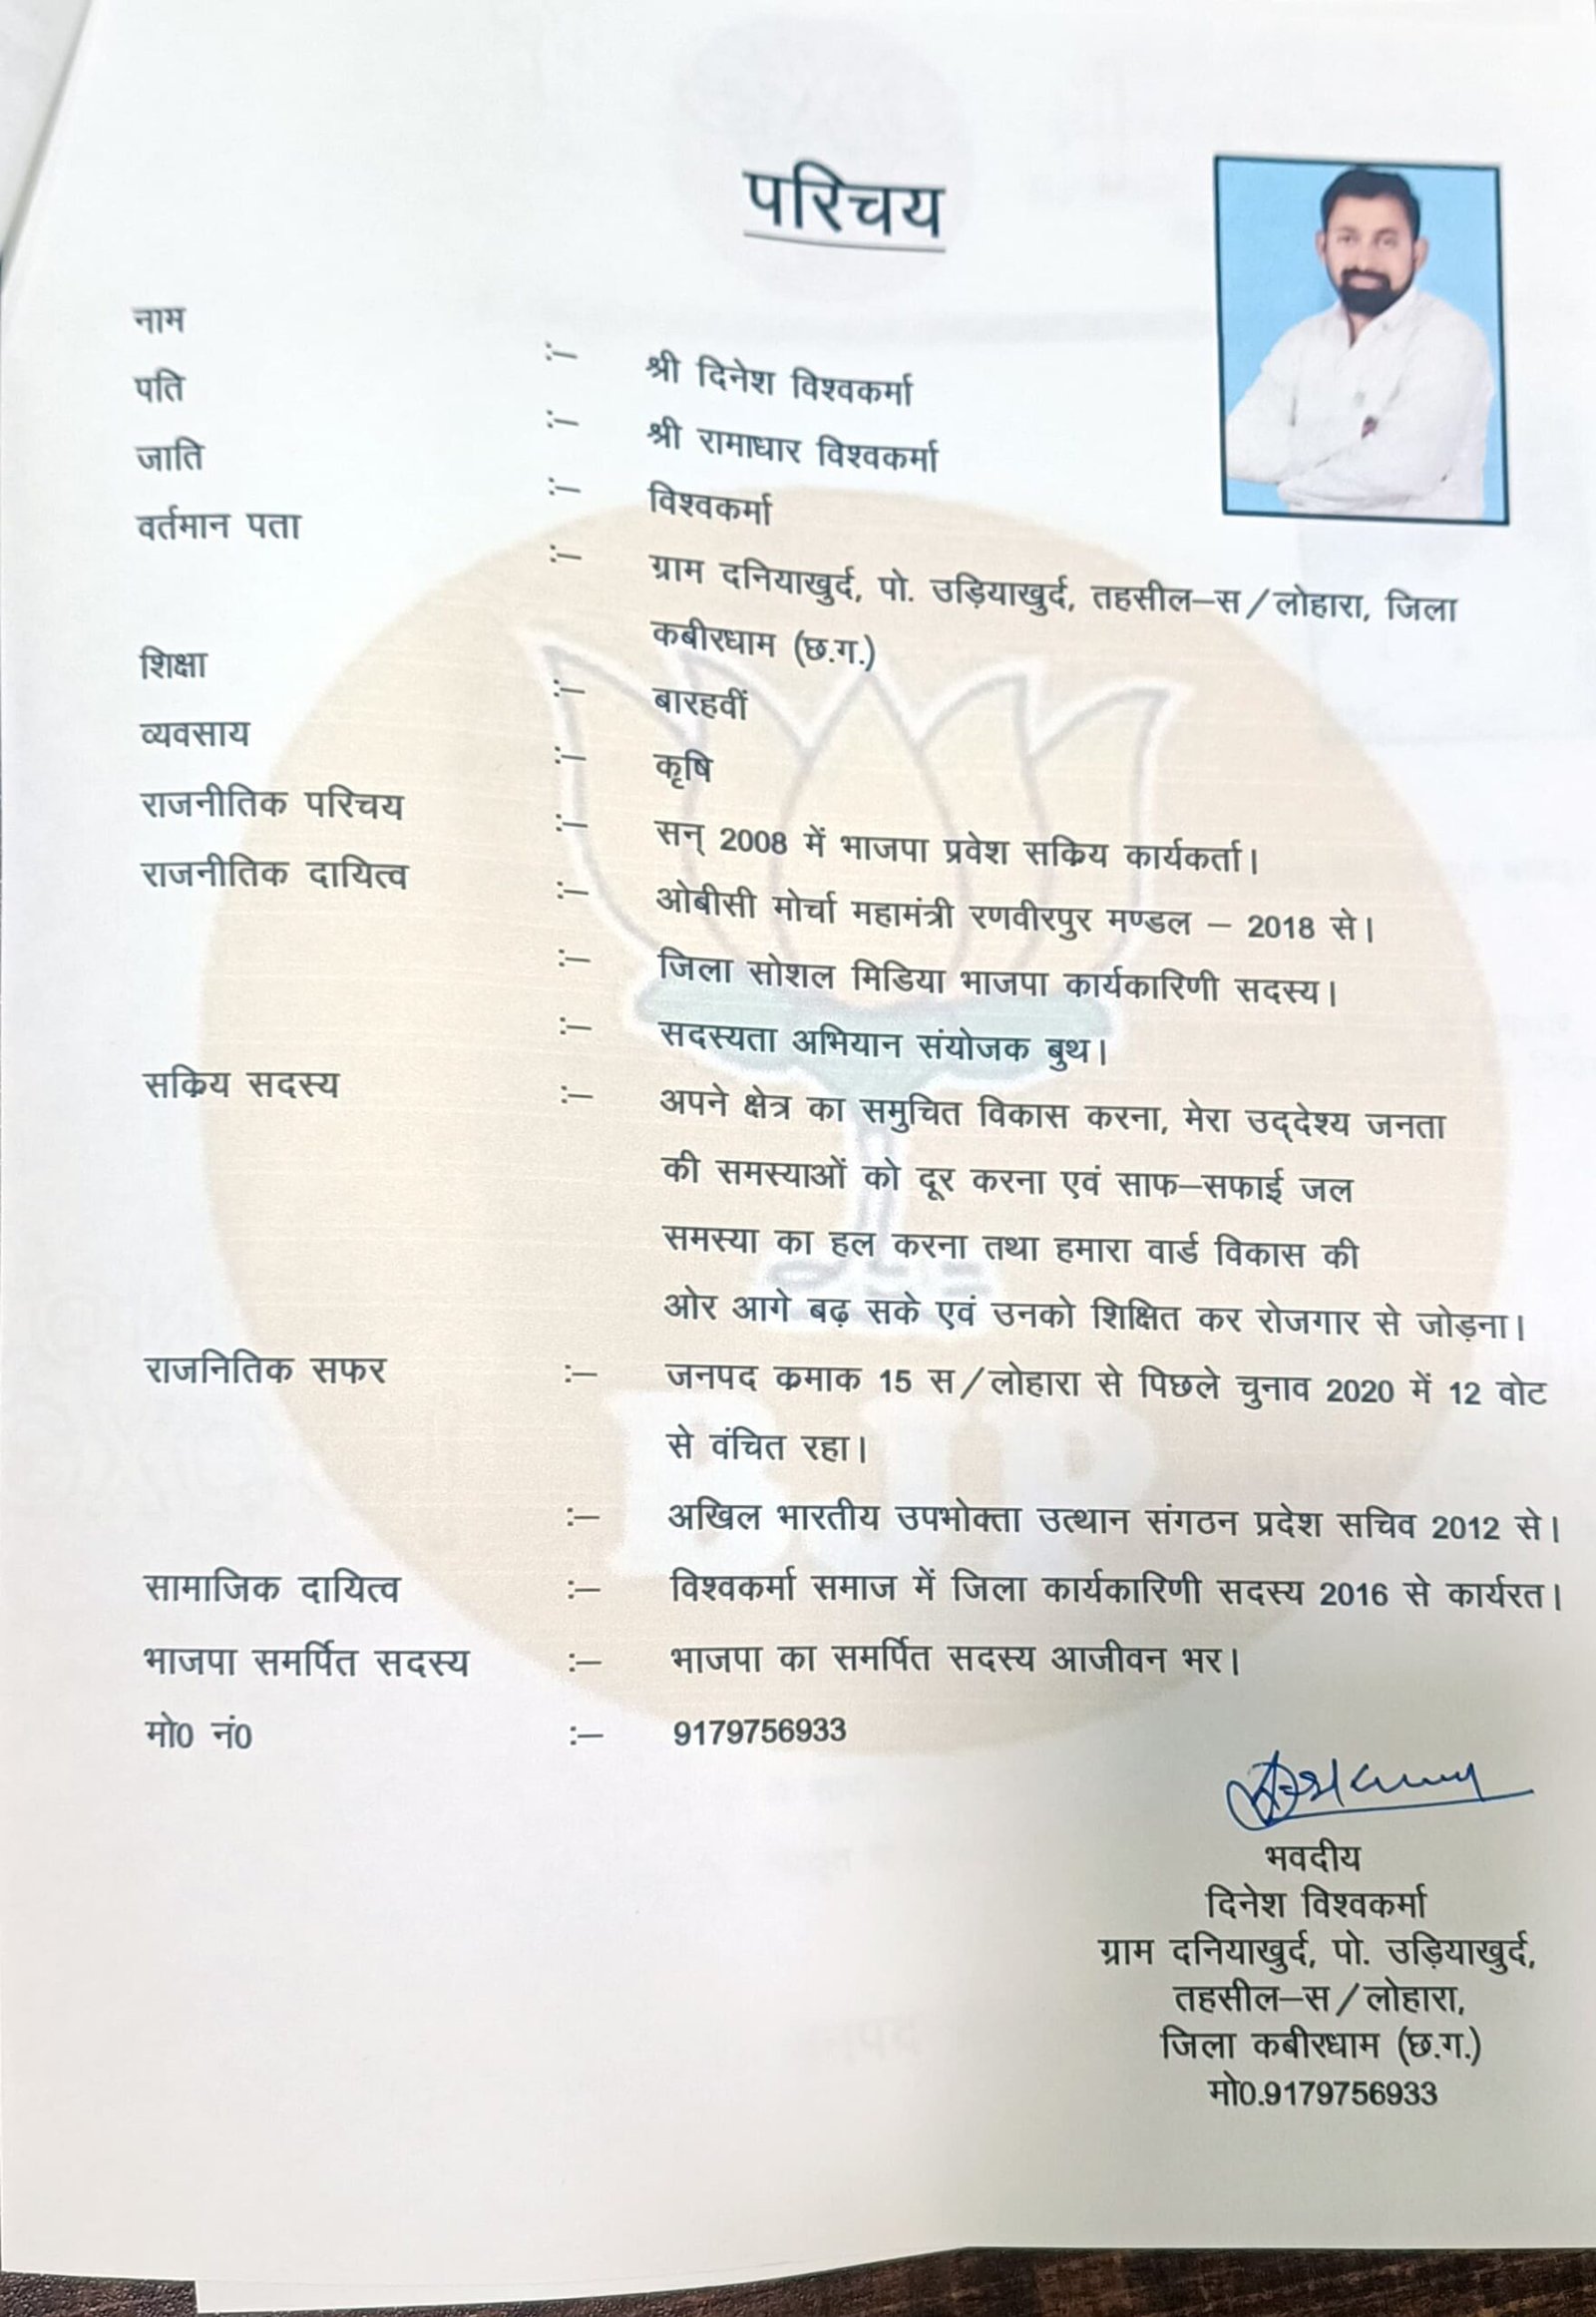 परिचय
नाम :– श्री दिनेश विश्वकर्मा
पति :– श्री रामाधार विश्वकर्मा
जाति :– विश्वकर्मा
वर्तमान पता :– ग्राम दनियाखुर्द, पो. उड़ियाखुर्द, तहसील–स/लोहारा, जिला
कबीरधाम (छ.ग.)
शिक्षा :– बारहवीं
व्यवसाय :– कृषि
राजनीतिक परिचय :– सन् 2008 में भाजपा प्रवेश सकिय कार्यकर्ता।
राजनीतिक दायित्व :– ओबीसी मोर्चा महामंत्री रणवीरपुर मण्डल – 2018 से।
:– जिला सोशल मिडिया भाजपा कार्यकारिणी सदस्य।
:– सदस्यता अभियान संयोजक बुथ।
सकिय सदस्य :– अपने क्षेत्र का समुचित विकास करना, मेरा उद्देश्य जनता
की समस्याओं को दूर करना एवं साफ–सफाई जल
समस्या का हल करना तथा हमारा वार्ड विकास की
ओर आगे बढ़ सके एवं उनको शिक्षित कर रोजगार से जोड़ना।
राजनितिक सफर :– जनपद कमाक 15 स/लोहारा से पिछले चुनाव 2020 में 12 वोट
से वंचित रहा।
:– अखिल भारतीय उपभोक्ता उत्थान संगठन प्रदेश सचिव 2012 से।
सामाजिक दायित्व :– विश्वकर्मा समाज में जिला कार्यकारिणी सदस्य 2016 से कार्यरत।
भाजपा समर्पित सदस्य :– भाजपा का समर्पित सदस्य आजीवन भर।
मो0 नं0 :– 9179756933
BJP
भवदीय
दिनेश विश्वकर्मा
ग्राम दनियाखुर्द, पो. उड़ियाखुर्द,
तहसील–स/लोहारा,
जिला कबीरधाम (छ.ग.)
मो0.9179756933